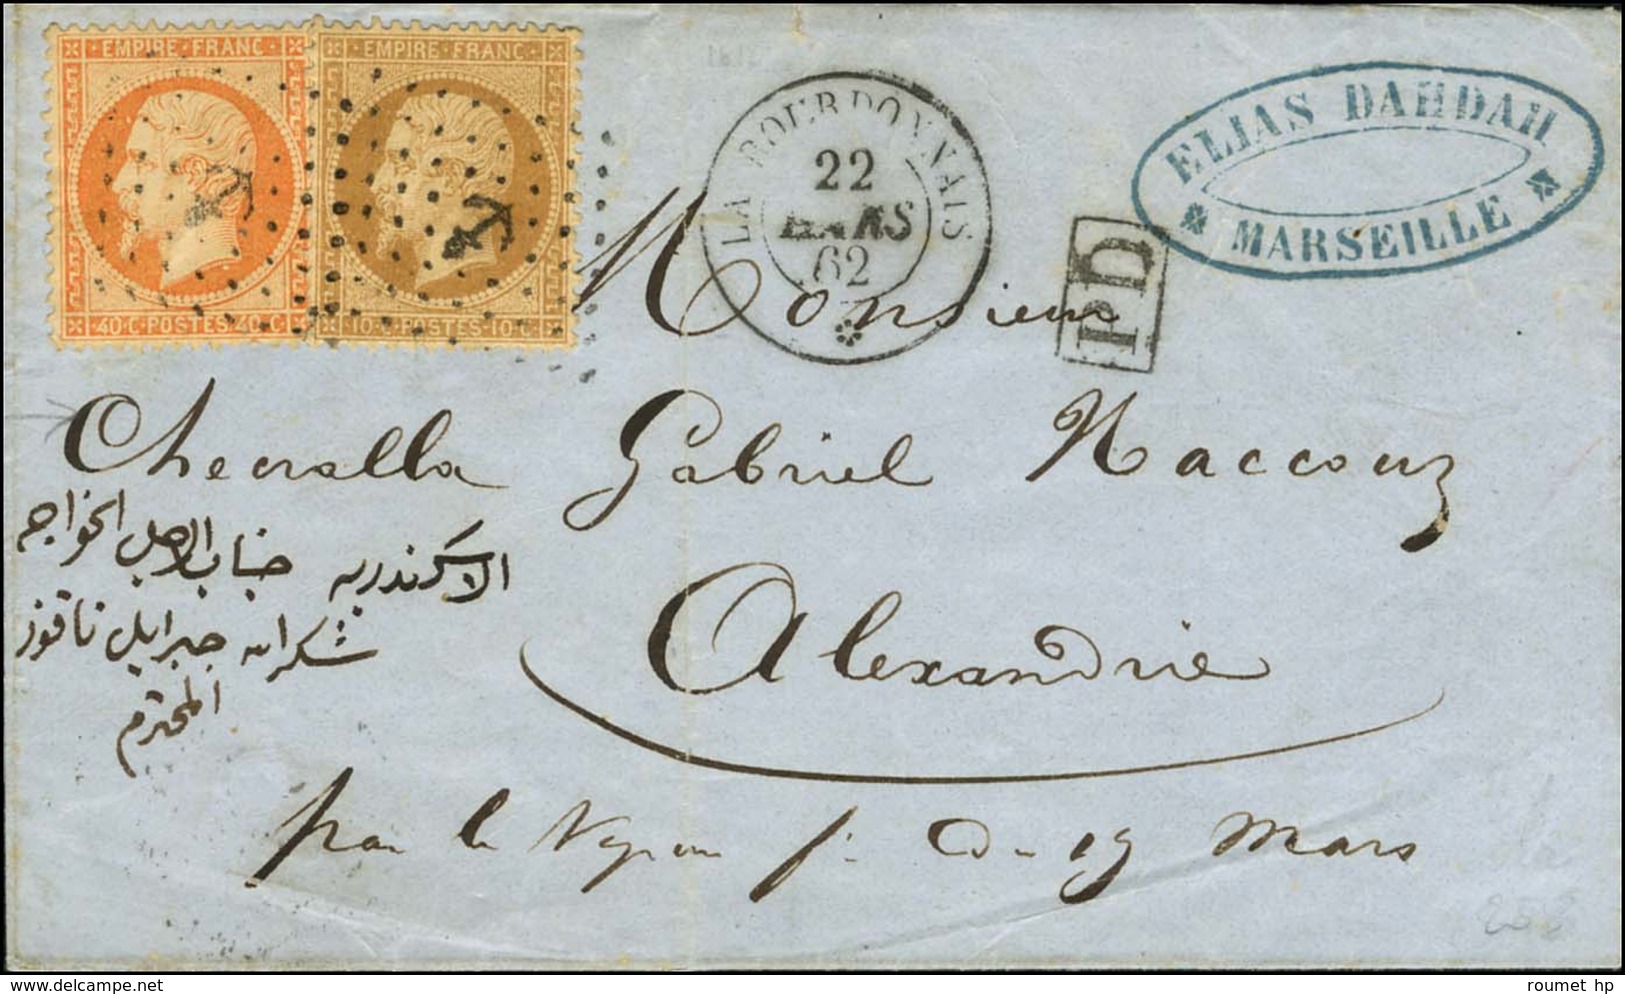 EMPIRE · FRANC
40 C · POSTES · 40 C
EMPIRE · FRANC
10 C · POSTES · 10 C
LA BOURDONNAIS
22
MARS
62
PD
ELIAS DAHDAH
MARSEILLE
Monsieur
Checralla Gabriel Naccouz
Alexandrie
الاسكندريه جناب الاجل الخواجه
شكرالله جبرايل ناقوز
المحترم
par le Vapeur f. du 19 Mars
roumet hp